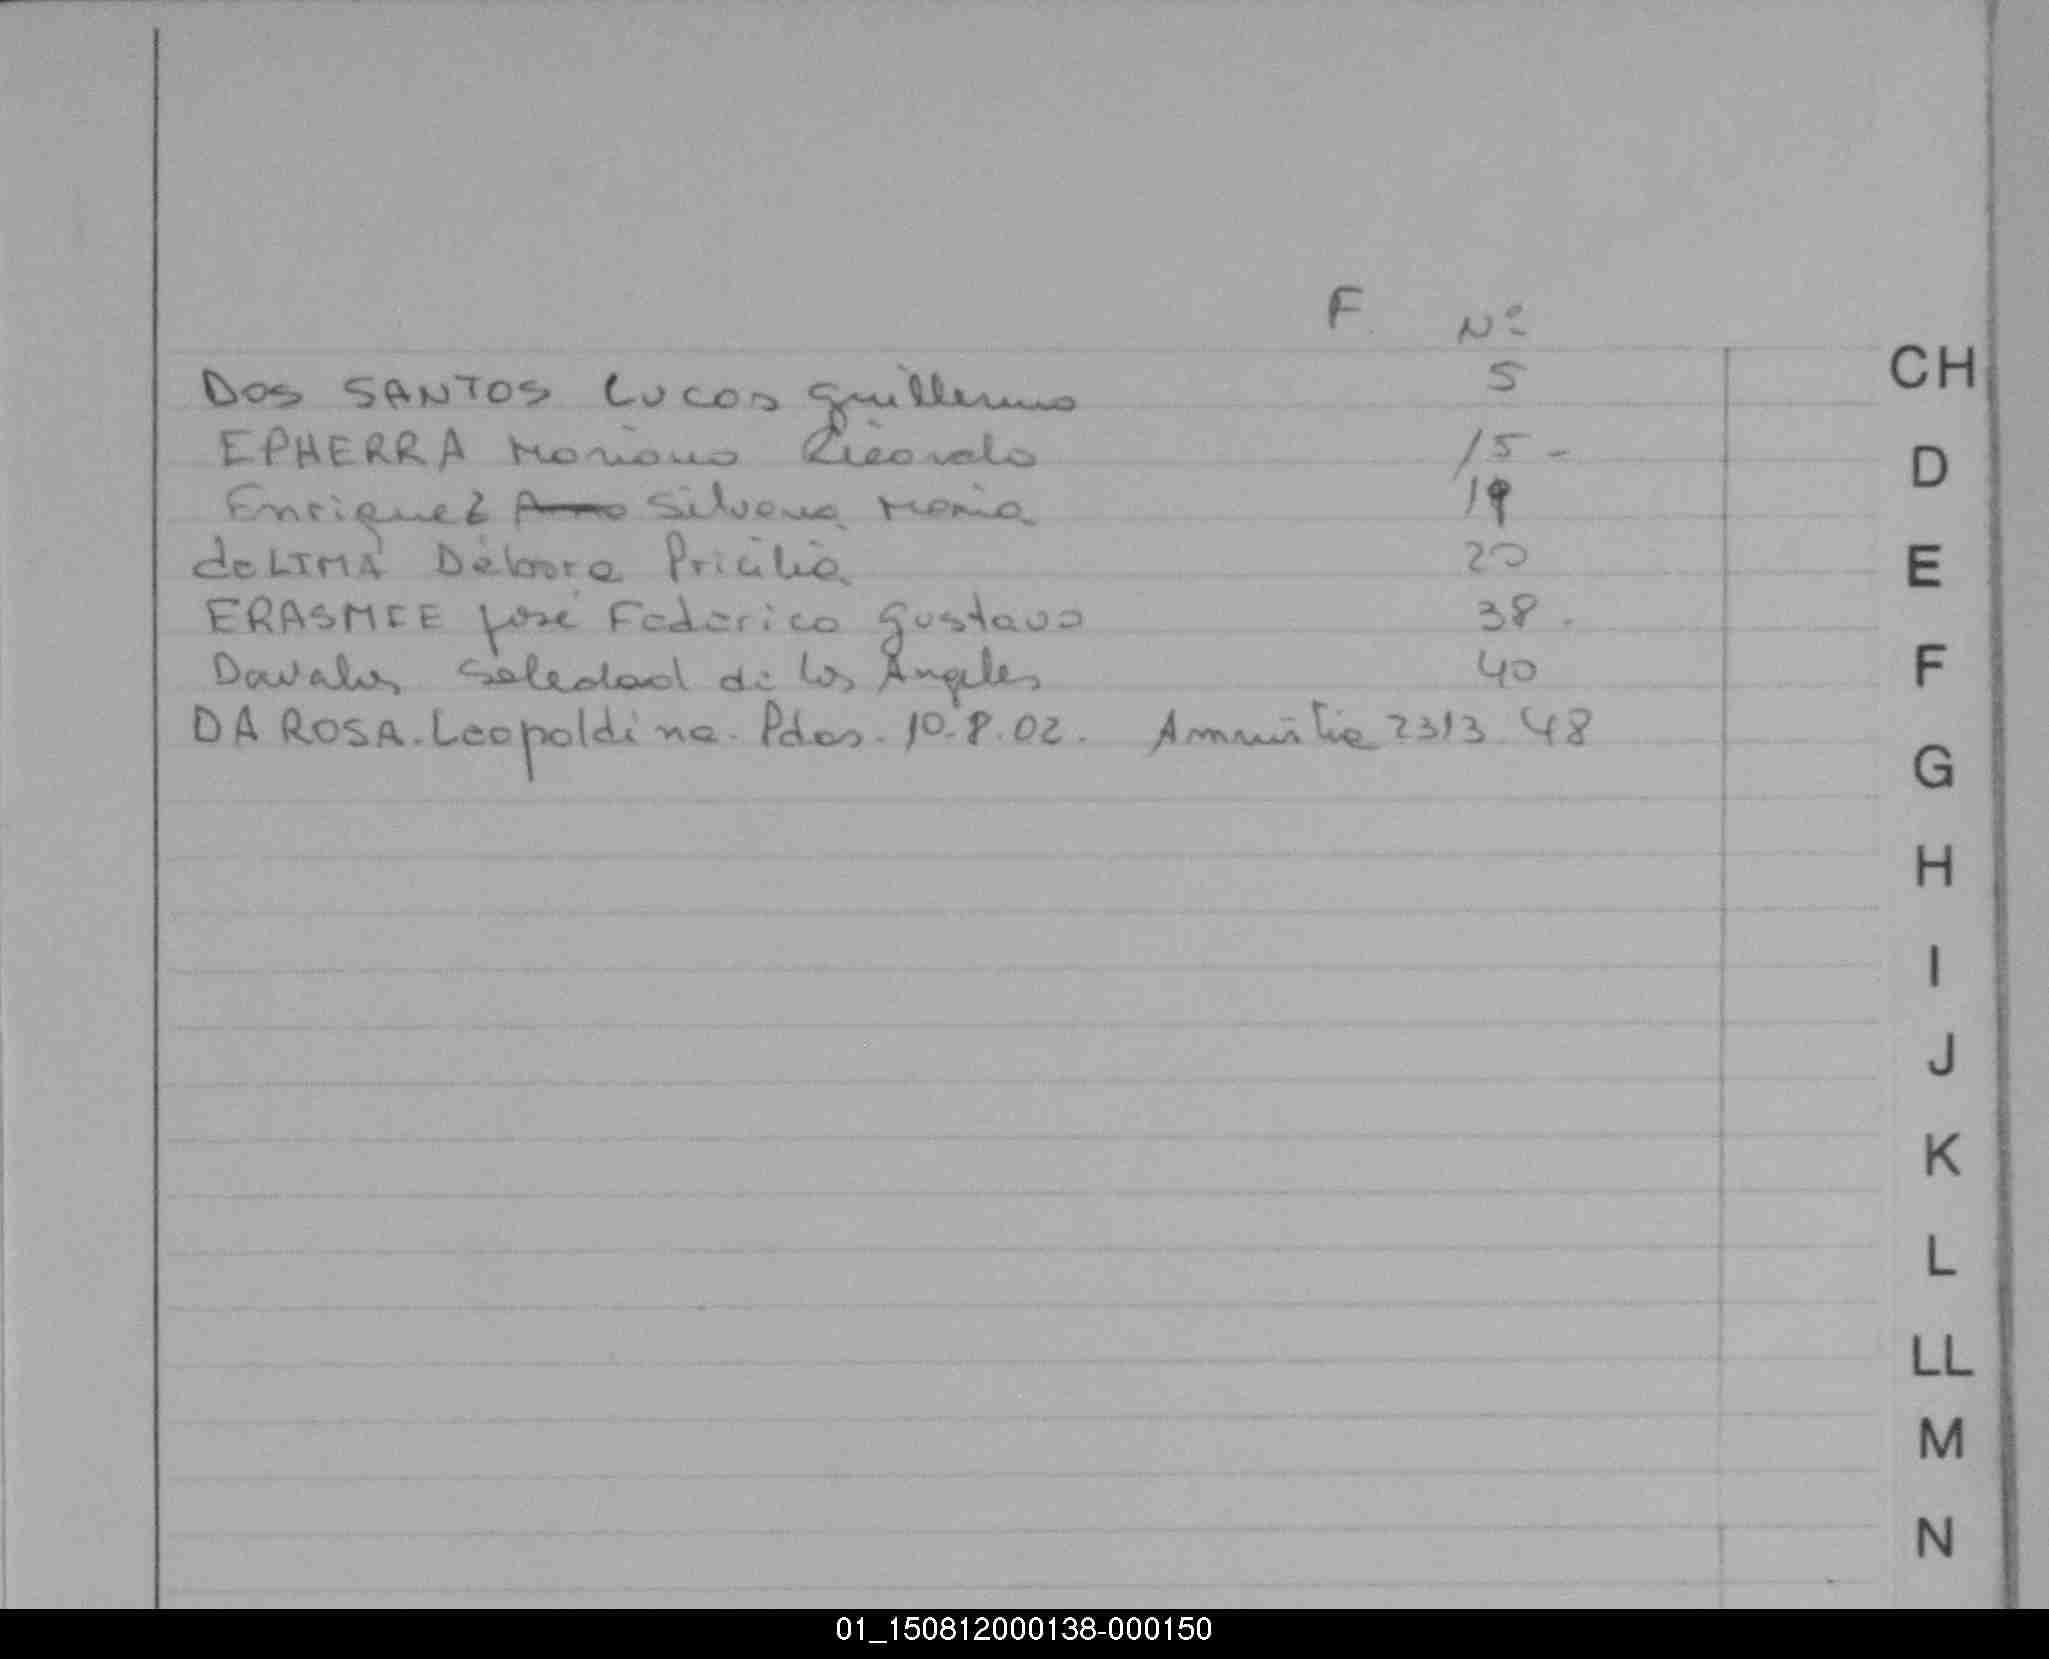 F. Nº
CH
DOS SANTOS Lucas Guillermo 5
EPHERRA Mariano Ricardo 15 -
D
Enriquez Silvana Maria 19
deLIMA Débora Pricilia 20
E
ERASMIE José Federico Gustavo 38.
Davalos Soledad de los Angeles 40
F
DA ROSA. Leopoldina. Pdas. 10.8.02. Amnistia 2313 48
G
H
I
J
K
L
LL
M
N
01_150812000138-000150